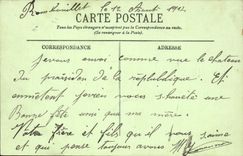 Rambouillet le 12 Août 191
CARTE POSTALE
Tous les Pays étrangers n'acceptent pas la Correspondance au recto.
(Se renseigner à la Poste).
CORRESPONDANCE ADRESSE
Je vous envoi comme vue le chateau
du président de la république. Et
en mettent je viens vous souhaité une
Bonne fête ainsi que ma mère.
Votre frère et fils qui vous aime
et qui pense toujours à vous